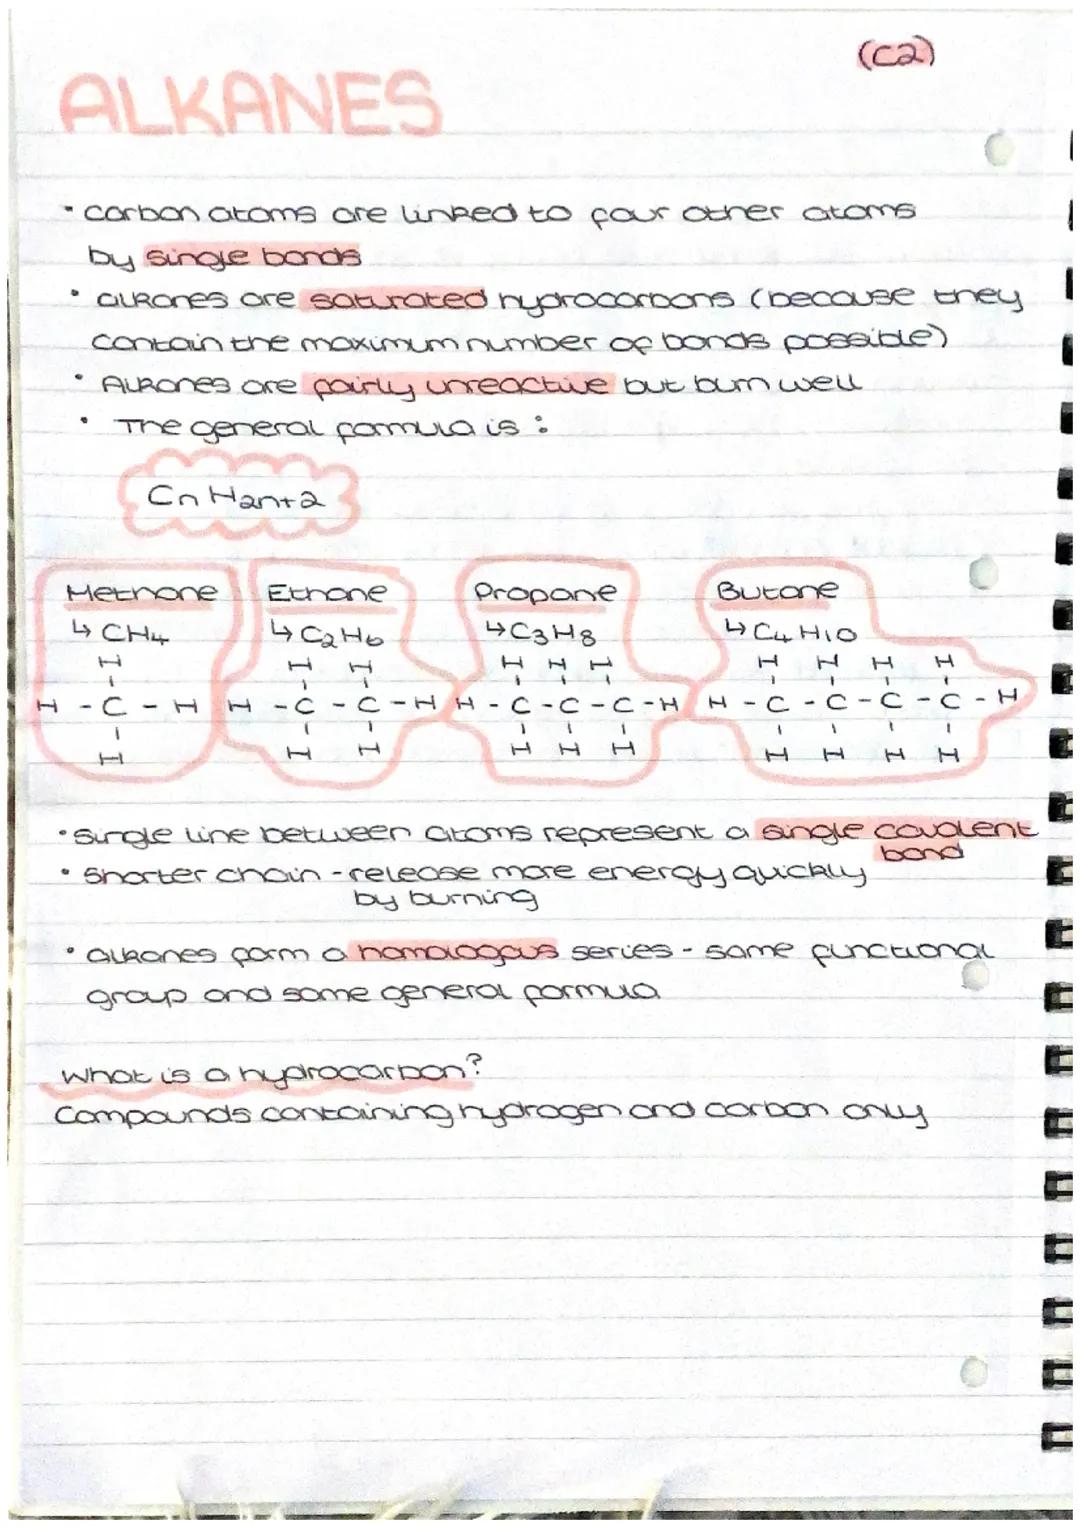 (C2)
ALKANES
• Carbon atoms are linked to four other atoms
by single bonds
• Alkanes are saturated hydrocarbons (because they
contain the maximum number of bonds possible)
• Alkanes are fairly unreactive but burn well
• The general formula is :
Cn H2n+2
Methane Ethane Propane Butane
↳ CH4 ↳ C2H6 ↳ C3H8 ↳ C4H10
H H H H H H H H H H
H - C - H H - C - C - H H - C - C - C - H H - C - C - C - C - H
H H H H H H H H H H
• Single line between atoms represent a single covalent
bond
• Shorter chain - release more energy quickly
by burning
• Alkanes form a homologous series - same functional
group and same general formula
What is a hydrocarbon?
Compounds containing hydrogen and carbon only